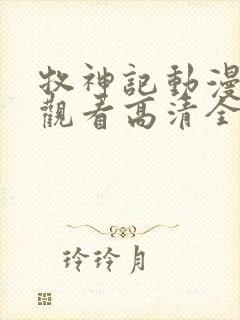 牧神記動漫
觀看高清全
玲玲月